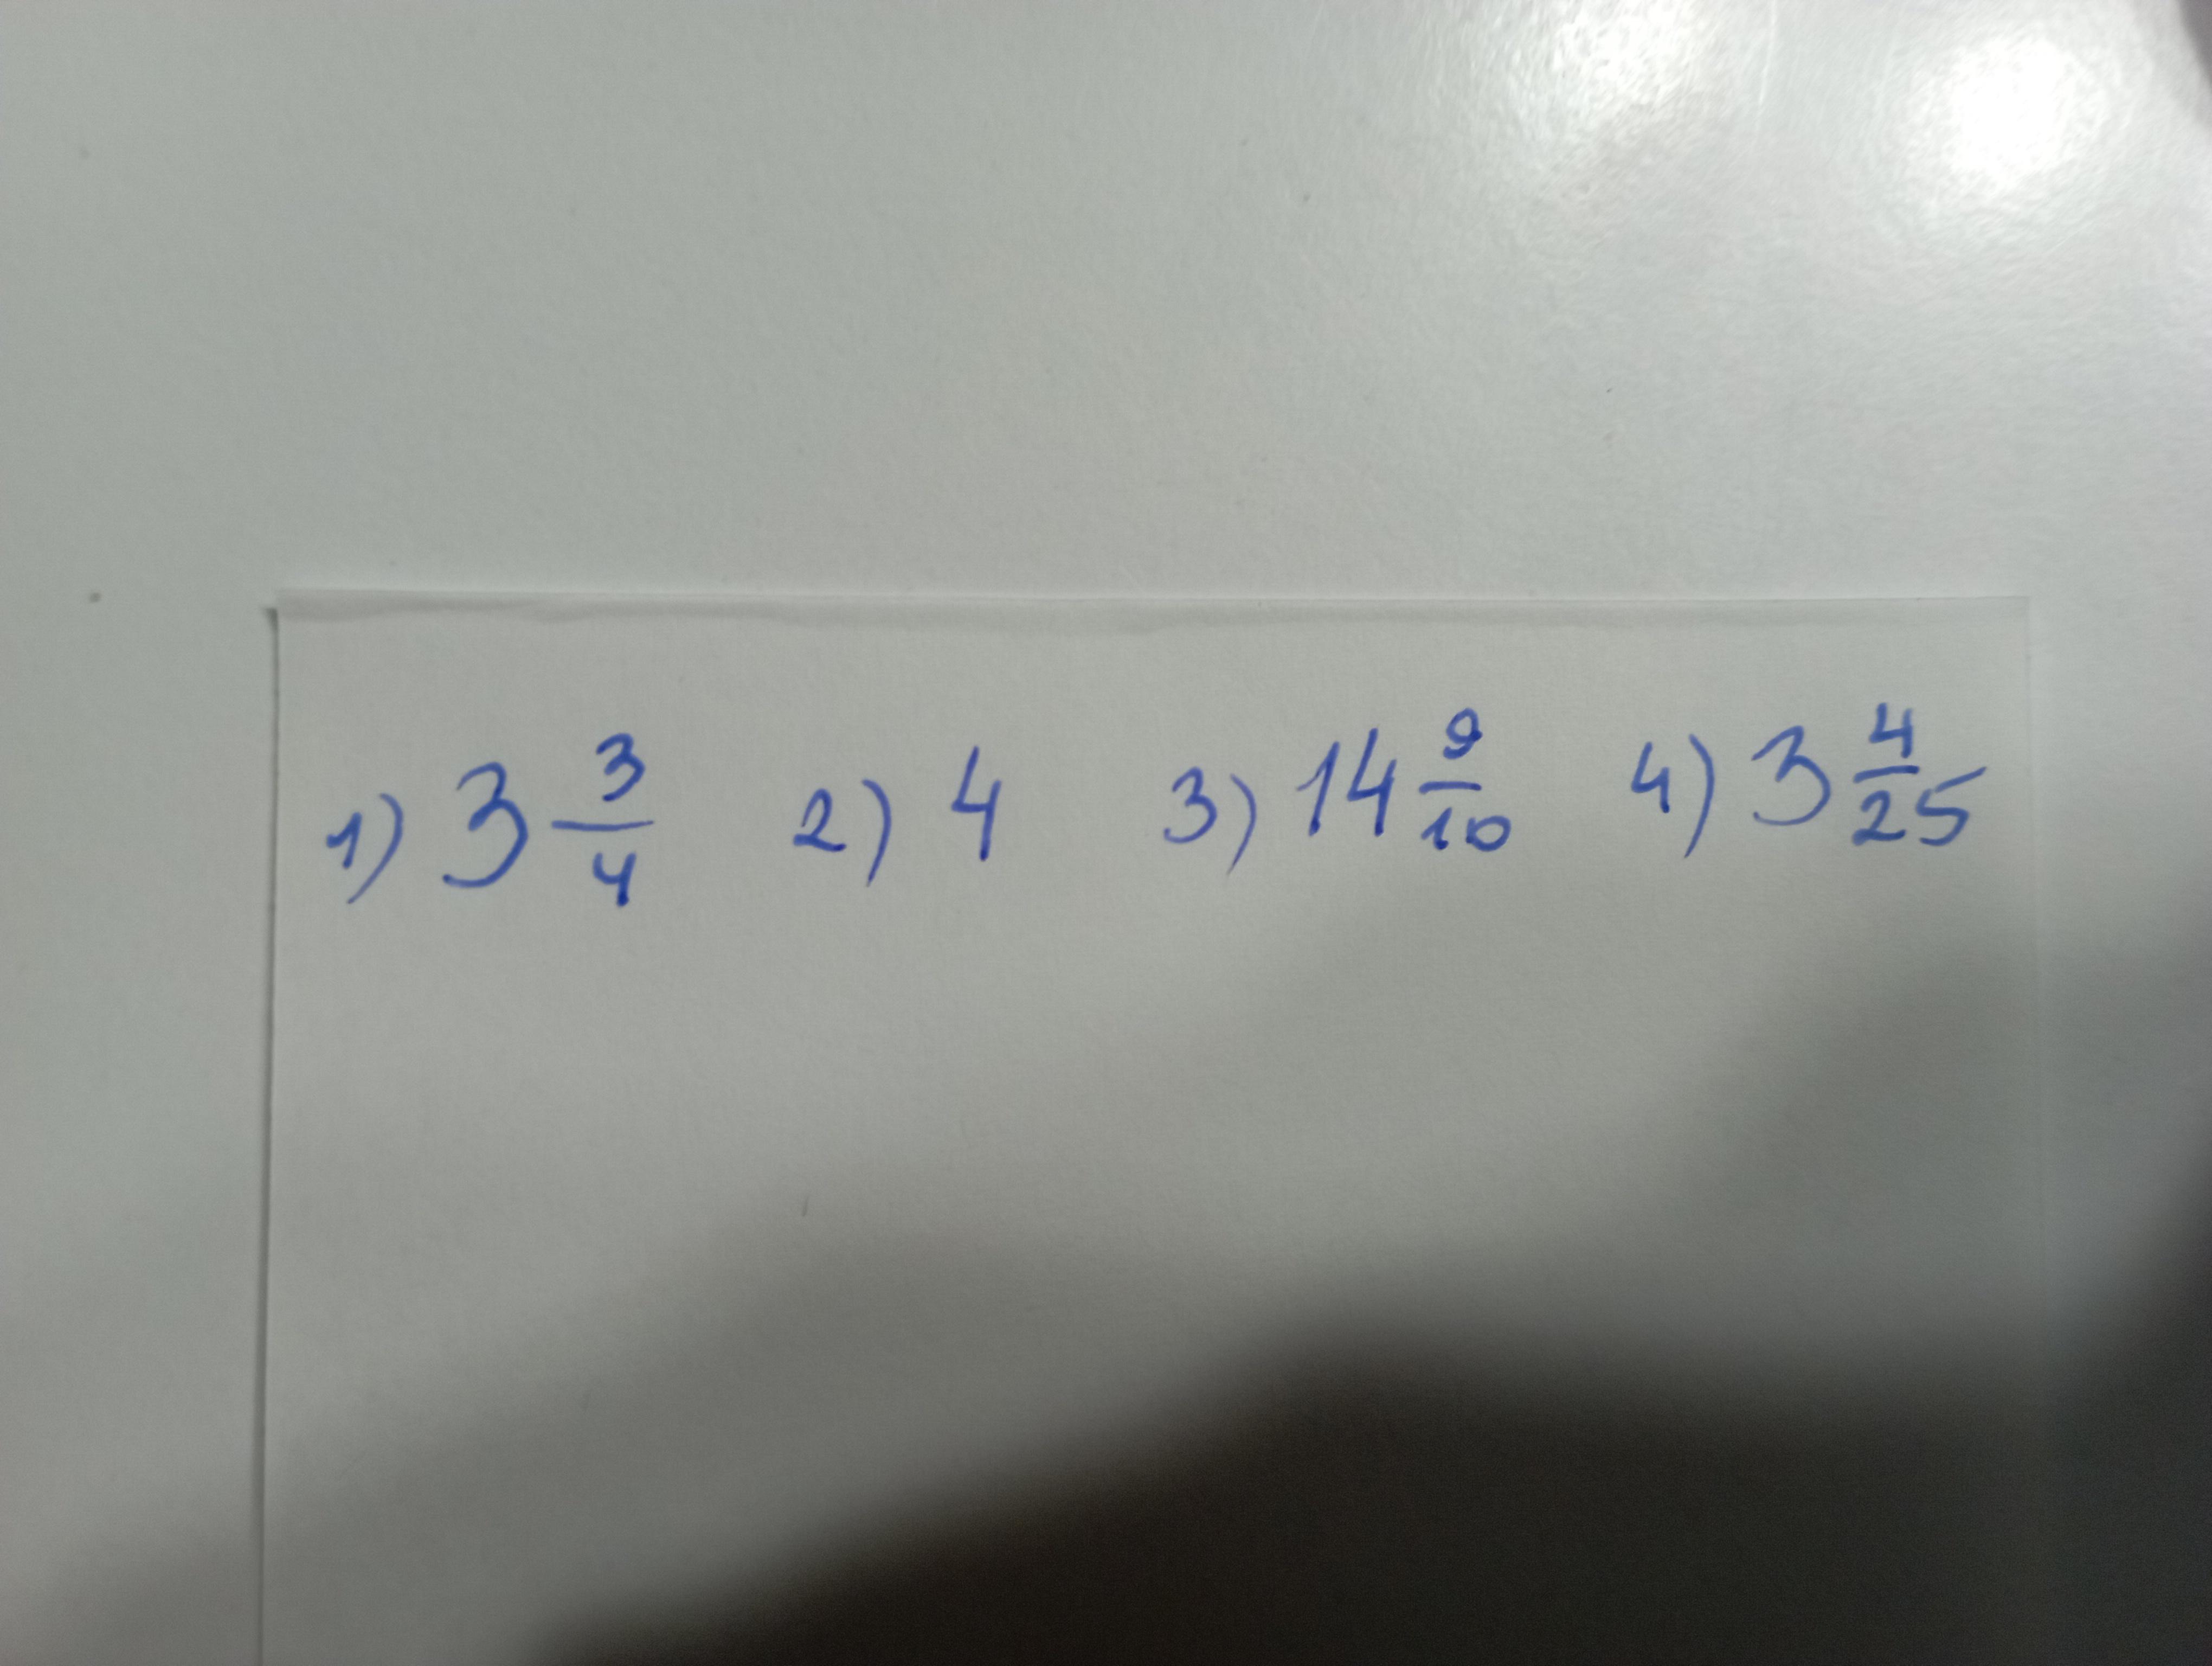 1) 3 3/4 2) 4 3) 14 9/10 4) 3 4/25